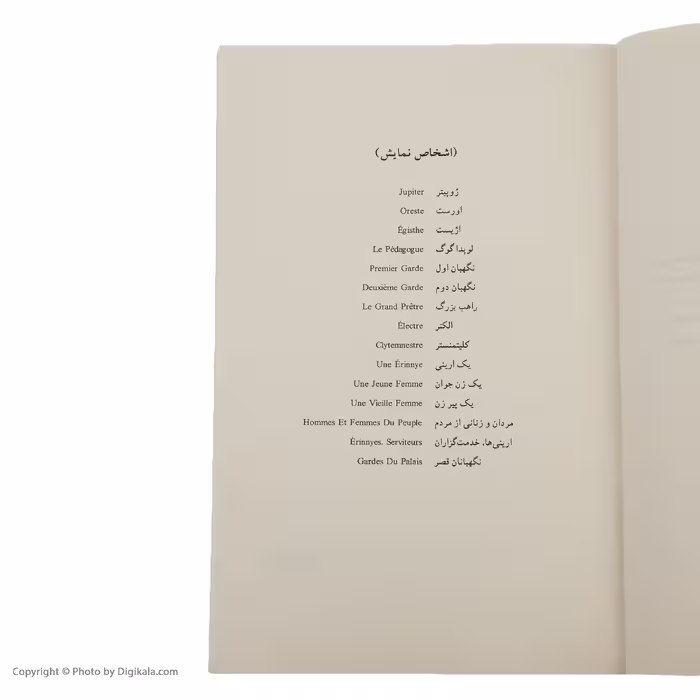 (اشخاص نمایش)
ژوپیتر Jupiter
اورست Oreste
اژیست Égisthe
لوپداگوگ Le Pédagogue
نگهبان اول Premier Garde
نگهبان دوم Deuxième Garde
راهب بزرگ Le Grand Prêtre
الکتر Électre
کلیتمنستر Clytemnestre
یک ارینی Une Érinnye
یک زن جوان Une Jeune Femme
یک پیر زن Une Vieille Femme
مردان و زنانی از مردم Hommes Et Femmes Du Peuple
ارینی‌ها، خدمت‌گزاران Érinnyes. Serviteurs
نگهبانان قصر Gardes Du Palais
Copyright © Photo by Digikala.com